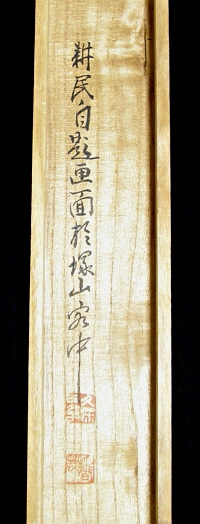 耕民自題画面於塚山客中